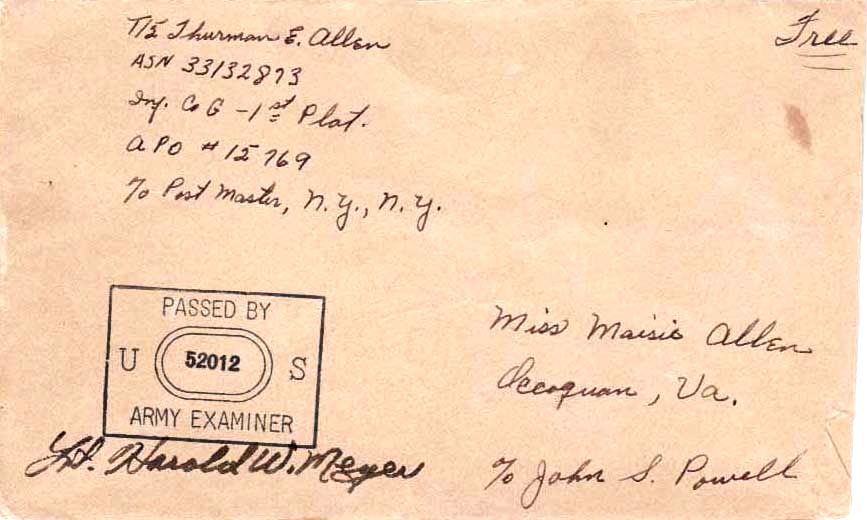 T/5 Thurman E. Allen
ASN 33132873
Inf. Co G - 1st Plat.
APO # 15769
℅ Post Master, N.Y., N.Y.
Free
PASSED BY
U 52012 S
ARMY EXAMINER
Lt. Harold W. Meyer
Miss Maisie Allen
Occoquan, Va.
℅ John S. Powell